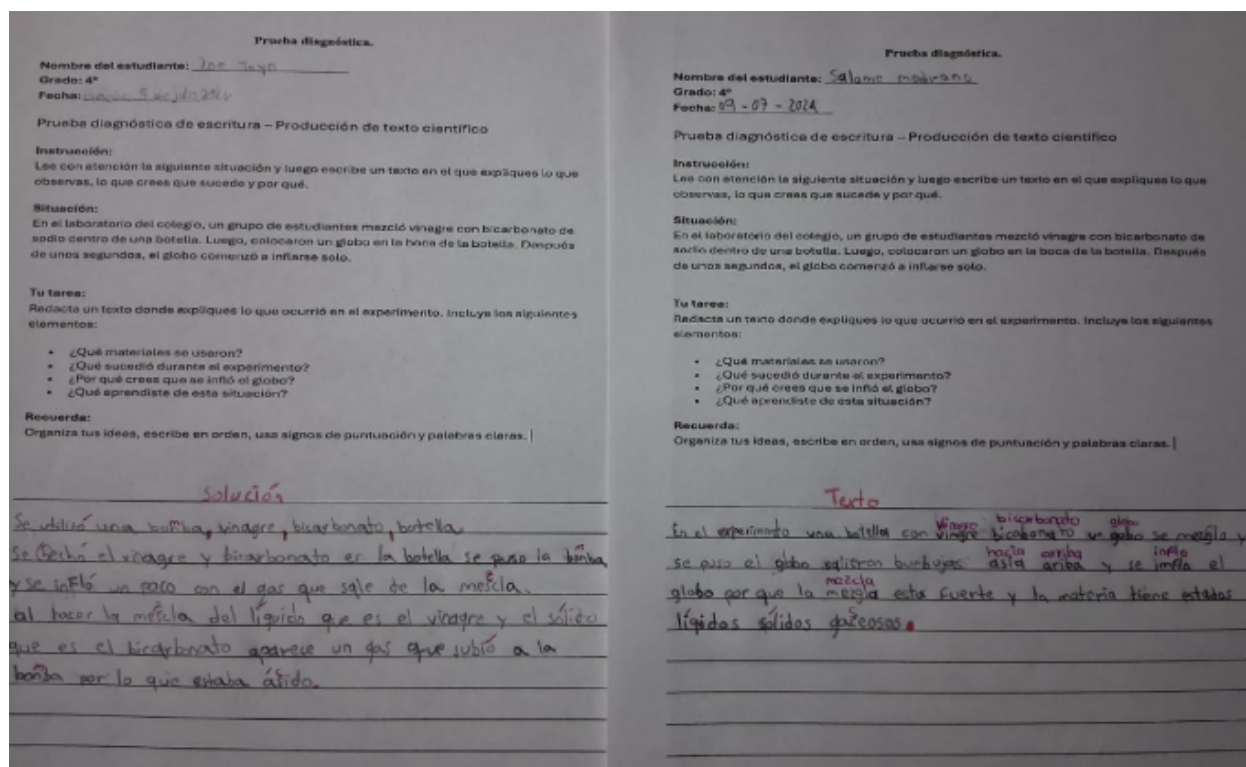 Prueba diagnóstica.
Nombre del estudiante: Zoe
Grado: 4°
Fecha:
Prueba diagnóstica de escritura – Producción de texto científico
Instrucción:
Lee con atención la siguiente situación y luego escribe un texto en el que expliques lo que
observas, lo que crees que sucede y por qué.
Situación:
En el laboratorio del colegio, un grupo de estudiantes mezció vinagre con bicarbonato de
sodio dentro de una botella. Luego, colocaron un globo en la boca de la botella. Después
de unos segundos, el globo comenzó a inflarse solo.
Tu tarea:
Redacta un texto donde expliques lo que ocurrió en el experimento. Incluye los siguientes
elementos:
• ¿Qué materiales se usaron?
• ¿Qué sucedió durante el experimento?
• ¿Por qué crees que se infló el globo?
• ¿Qué aprendiste de esta situación?
Recuerda:
Organiza tus ideas, escribe en orden, usa signos de puntuación y palabras claras.
Solución
Se utilizó una bomba, vinagre, bicarbonato, botella.
se hechó el vinagre y bicarbonato en la botella se puso la bomba
y se infló un poco con el gas que sale de la mescla.
al hacer la mescla del líquido que es el vinagre y el sólido
que es el bicarbonato aparece un gas que subió a la
bomba por lo que estaba ásido.
Prueba diagnóstica.
Nombre del estudiante: Salome medrano
Grado: 4°
Fecha: 09 - 07 - 2024
Prueba diagnóstica de escritura – Producción de texto científico
Instrucción:
Lee con atención la siguiente situación y luego escribe un texto en el que expliques lo que
observas, lo que crees que sucede y por qué.
Situación:
En el laboratorio del colegio, un grupo de estudiantes mezcló vinagre con bicarbonato de
sodio dentro de una botella. Luego, colocaron un globo en la boca de la botella. Después
de unos segundos, el globo comenzó a inflarse solo.
Tu tarea:
Redacta un texto donde expliques lo que ocurrió en el experimento. Incluye los siguientes
elementos:
• ¿Qué materiales se usaron?
• ¿Qué sucedió durante el experimento?
• ¿Por qué crees que se infló el globo?
• ¿Qué aprendiste de esta situación?
Recuerda:
Organiza tus ideas, escribe en orden, usa signos de puntuación y palabras claras.
Texto
vinagre bicarbonato globo
En el experimento una botella con vingre bicobonato un gobo se mezglo y
hacia arriba inflo
se puso el globo salieron burbujas asia ariba y se imfla el
mezcla
globo por que la mezgla esta fuerte y la materia tiene estados
líqidos sólidos gaseosos.